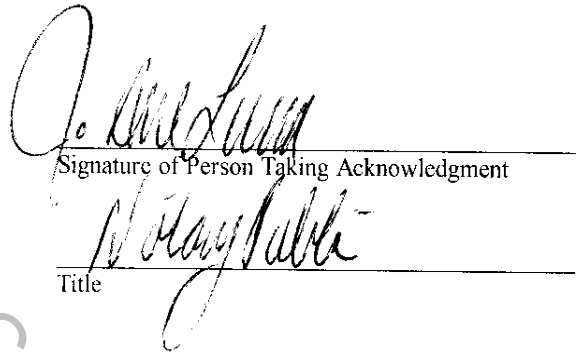 J.
Signature of Person Taking Acknowledgment
Notary Public
Title